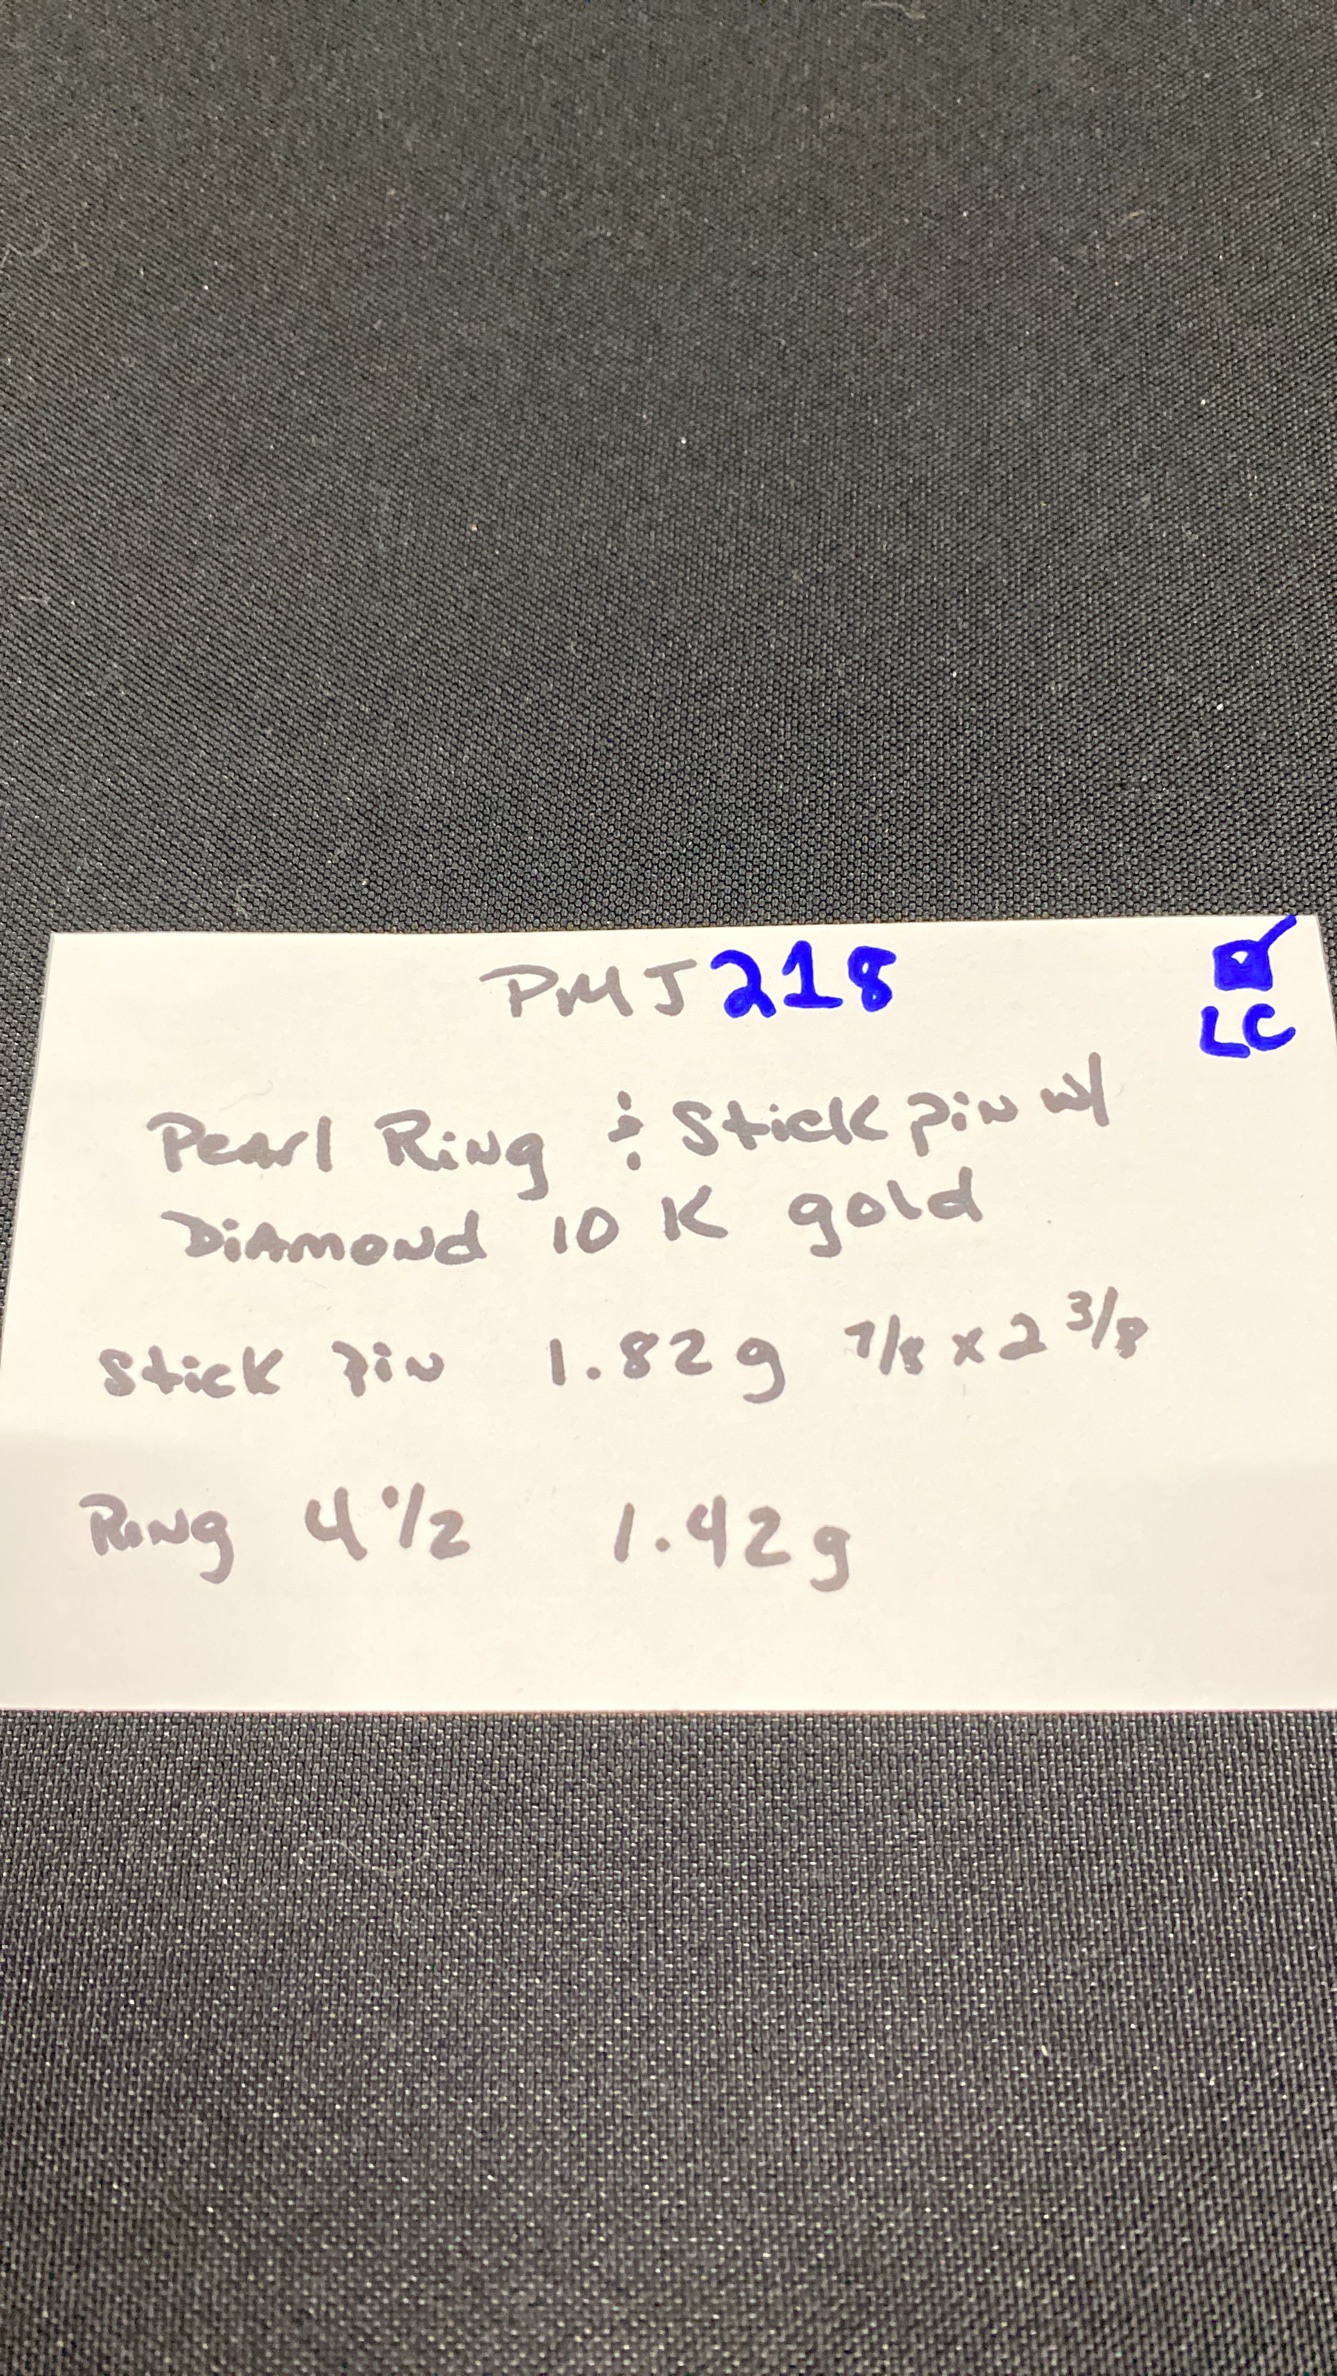 PMJ218
LC
Pearl Ring & Stick pin w/
Diamond 10 K gold
Stick pin 1.82g 7/8 x 2 3/8
Ring 4 1/2 1.42g